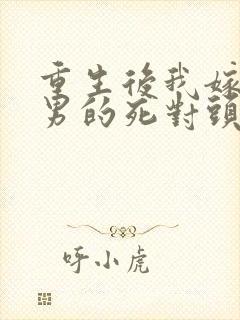 重生後我嫁
男的死對頭
呼小虎